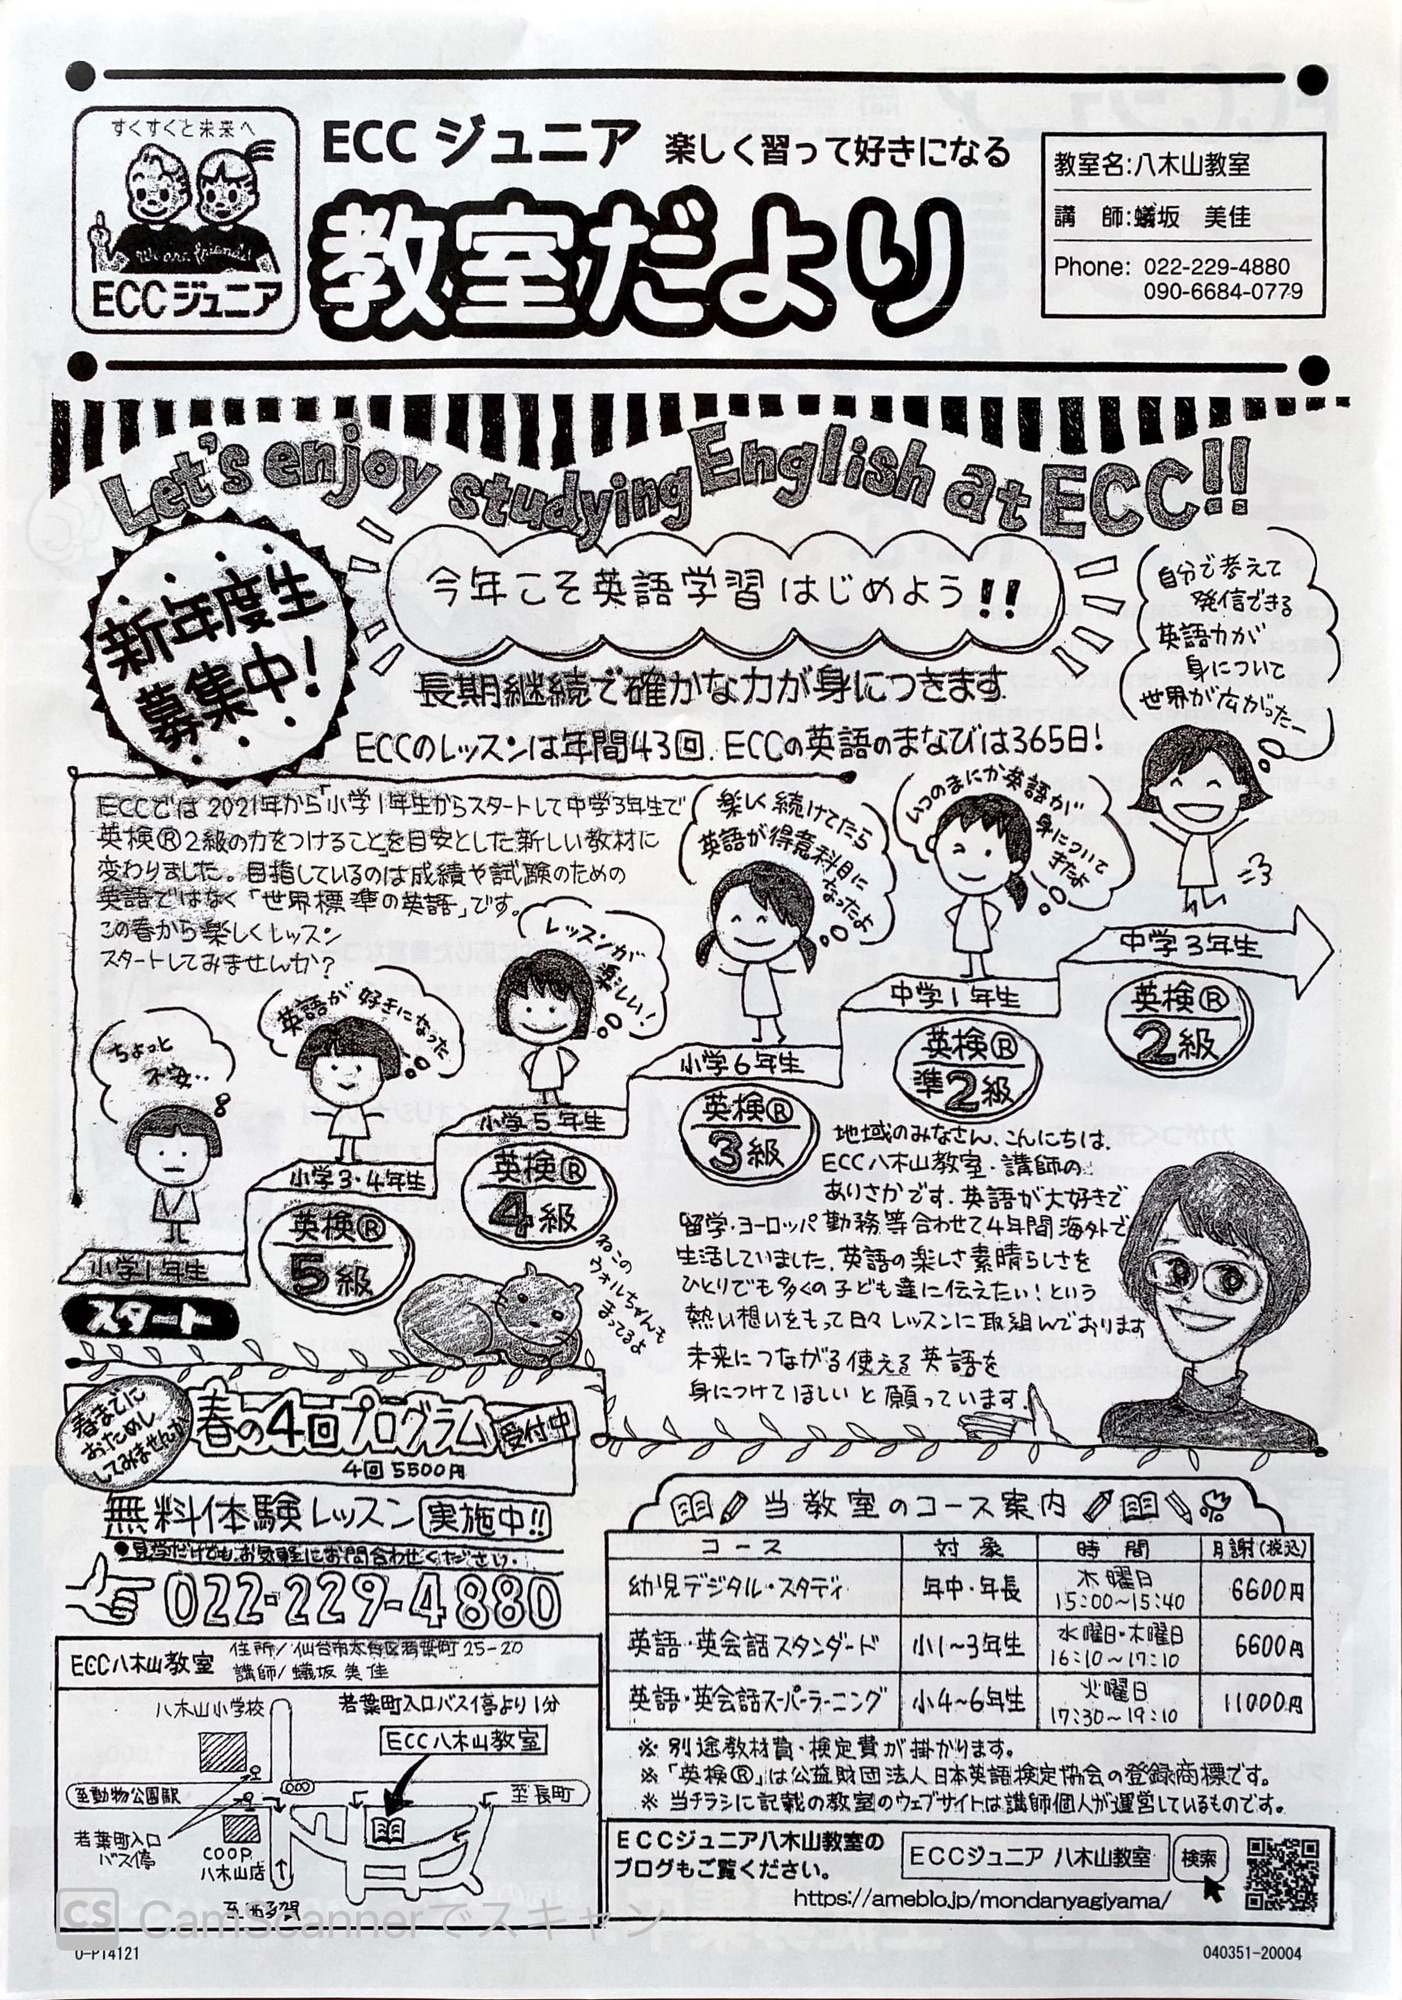 すくすくと未来へ
We are friends!
ECCジュニア
ECC ジュニア 楽しく習って好きになる
教室だより
教室名:八木山教室
講 師:蟻坂 美佳
Phone: 022-229-4880
090-6684-0779
Let's enjoy studying English at ECC!!
新年度生
募集中!
今年こそ英語学習はじめよう!!
長期継続で確かな力が身につきます
ECCのレッスンは年間43回.ECCの英語のまなびは365日!
自分で考えて
発信できる
英語力が
身について
世界が広がった
ECCでは2021年から「小学1年生からスタートして中学3年生で
英検®2級の力をつけること」を目安とした新しい教材に
変わりました。目指しているのは成績や試験のための
英語ではなく「世界標準の英語」です。
この春から楽しくレッスン
スタートしてみませんか?
ちょっと
不安..
英語が好きになった
レッスンが
楽しい!
楽しく続けてたら
英語が得意科目に
なったよ
いつのまにか英語が
身について
きたよ
小学1年生
スタート
小学3・4年生
英検®
5級
小学5年生
英検®
4級
小学6年生
英検®
3級
中学1年生
英検®
準2級
中学3年生
英検®
2級
ねこの
ウォルちゃんも
まってるよ
地域のみなさん、こんにちは.
ECC八木山教室・講師の
ありさかです.英語が大好きで
留学・ヨーロッパ勤務等合わせて4年間海外で
生活していました.英語の楽しさ素晴らしさを
ひとりでも多くの子ども達に伝えたい!という
熱い想いをもって日々レッスンに取組んでおります
未来につながる使える英語を
身につけてほしいと願っています.
春までに
おためし
してみませんか
春の4回プログラム 受付中
4回5500円
無料体験レッスン 実施中!!
●見学だけでもお気軽にお問合わせください.
022-229-4880
ECC八木山教室
住所/仙台市太白区若葉町25-20
講師/蟻坂美佳
八木山小学校
若葉町入口バス停より1分
ECC八木山教室
至動物公園駅
至長町
若葉町入口
バス停
COOP
八木山店
至西多賀
当教室のコース案内
コース 対象 時間 月謝(税込)
幼児デジタル・スタディ 年中・年長 木曜日 15:00~15:40 6600円
英語・英会話スタンダード 小1~3年生 水曜日・木曜日 16:10~17:10 6600円
英語・英会話スーパーラーニング 小4~6年生 火曜日 17:30~19:10 11000円
※ 別途教材費・検定費が掛かります。
※「英検®」は公益財団法人日本英語検定協会の登録商標です。
※ 当チラシに記載の教室のウェブサイトは講師個人が運営しているものです。
ECCジュニア八木山教室の
ブログもご覧ください。
ECCジュニア 八木山教室 検索
https://ameblo.jp/mondanyagiyama/
CS CamScannerでスキャン
U-P14121
040351-20004